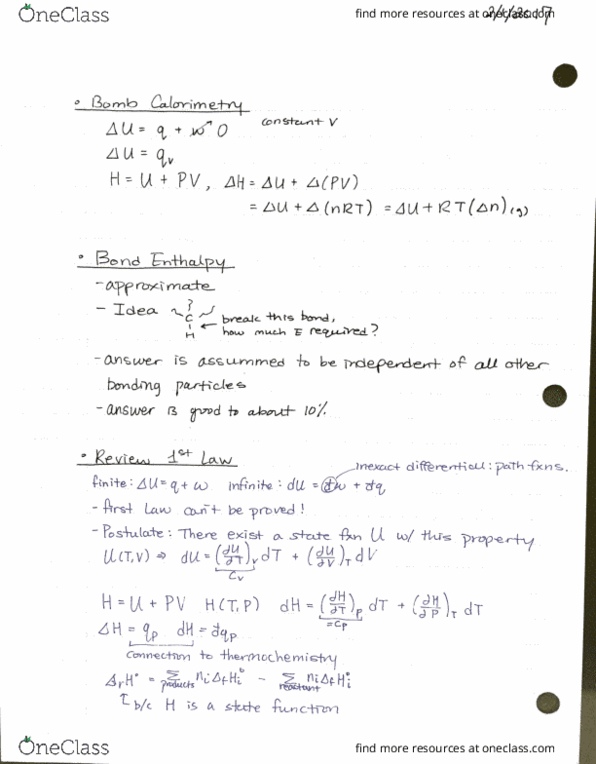 OneClass
find more resources at oneclass.com
• Bomb Calorimetry
ΔU = q + w↗0 constant V
ΔU = qᵥ
H = U + PV, ΔH = ΔU + Δ(PV)
= ΔU + Δ(nRT) = ΔU + RT(Δn)(g)
• Bond Enthalpy
-approximate
- Idea ? C H ← break this bond,
how much E required?
-answer is assummed to be independent of all other
bonding particles
-answer is good to about 10%
• Review 1st Law
inexact differential: path fxns.
finite: ΔU = q + w infinite: dU = đw + đq
- first Law can't be proved!
- Postulate: There exist a state fxn U w/ this property
U(T,V) ⇒ dU = (∂U/∂T)ᵥ dT + (∂U/∂V)_T dV
Cᵥ
H = U + PV H(T,P) dH = (∂H/∂T)_P dT + (∂H/∂P)_T dT
=Cp
ΔH = qp dH = đqp
connection to thermochemistry
ΔrH° = Σ products niΔfHi° − Σ reactant niΔfHi°
↑ b/c H is a state function
OneClass
find more resources at oneclass.com